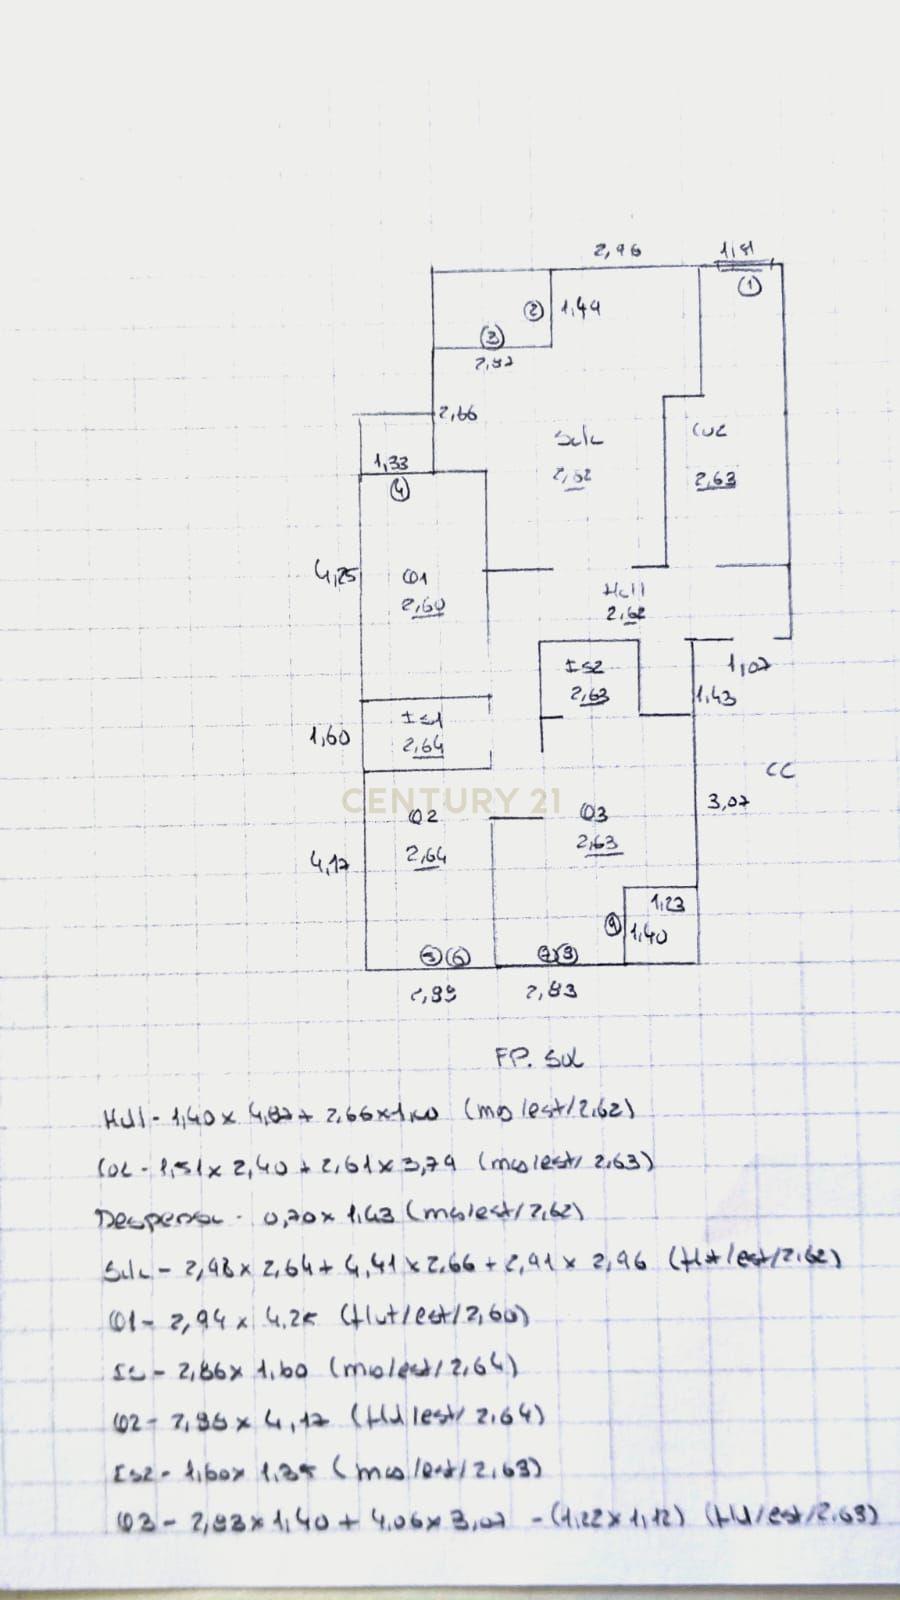 2,96
1,81
①
② 1,49
③
2,92
2,66
Sala
2,62
Coz
2,63
1,33
④
4,25
Q1
2,60
Hall
2,62
IS2
2,63
1,07
1,43
IS1
2,64
1,60
CC
CENTURY 21
Q2
2,64
Q3
2,63
3,07
4,17
1,23
⑨ 1,40
⑤⑥
⑦⑧
2,83
FP. Sul
Hall - 1,40 x (mo/est/2,62)
Coz - 1,51 x 2,40 + 2,61 x 3,79 (mo/est/2,63)
Despensa - 0,70 x 1,43 (mo/est/2,62)
Sala - 2,98 x 2,64 + 4,41 x 2,66 + 2,91 x 2,96 (flut/est/2,62)
Q1 - 2,94 x 4,25 (flut/est/2,60)
IS - 2,86 x 1,60 (mo/est/2,64)
Q2 - x 4,17 (flut/est/2,64)
IS2 - 1,60 x (mo/est/2,63)
Q3 - 2,83 x 1,40 + 4,06 x 3,07 - (1,22 x 1,12) (flut/est/2,63)